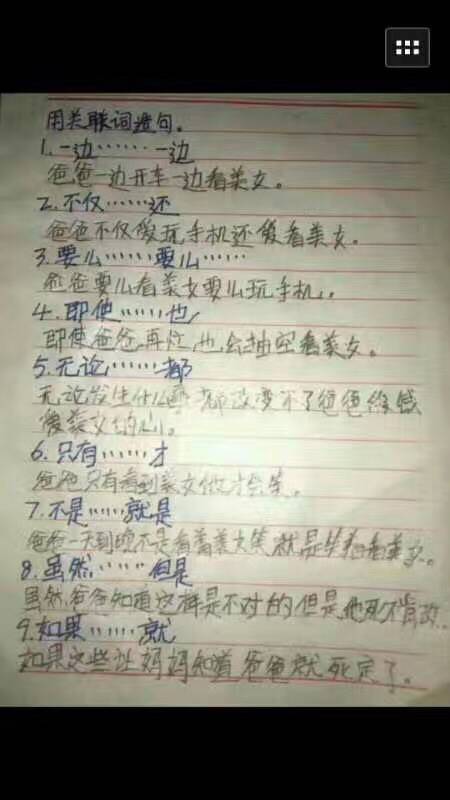 用关联词造句。
1.一边……一边
爸爸一边开车一边看美女。
2.不仅……还
爸爸不仅爱玩手机还爱看美女。
3.要么……要么……
爸爸要么看美女要么玩手机。
4.即使……也
即使爸爸再忙,也会抽空看美女。
5.无论……都
无论发生什么事都改变不了爸爸
美女的心。
6.只有……才
爸爸只有看到美女他才会笑。
7.不是……就是
爸爸一天到晚不是看着美女笑就是笑着看美女。
8.虽然……但是
虽然爸爸知道这样是不对的但是他死不肯改.
9.如果……就
如果这些让妈妈知道爸爸就死定了。